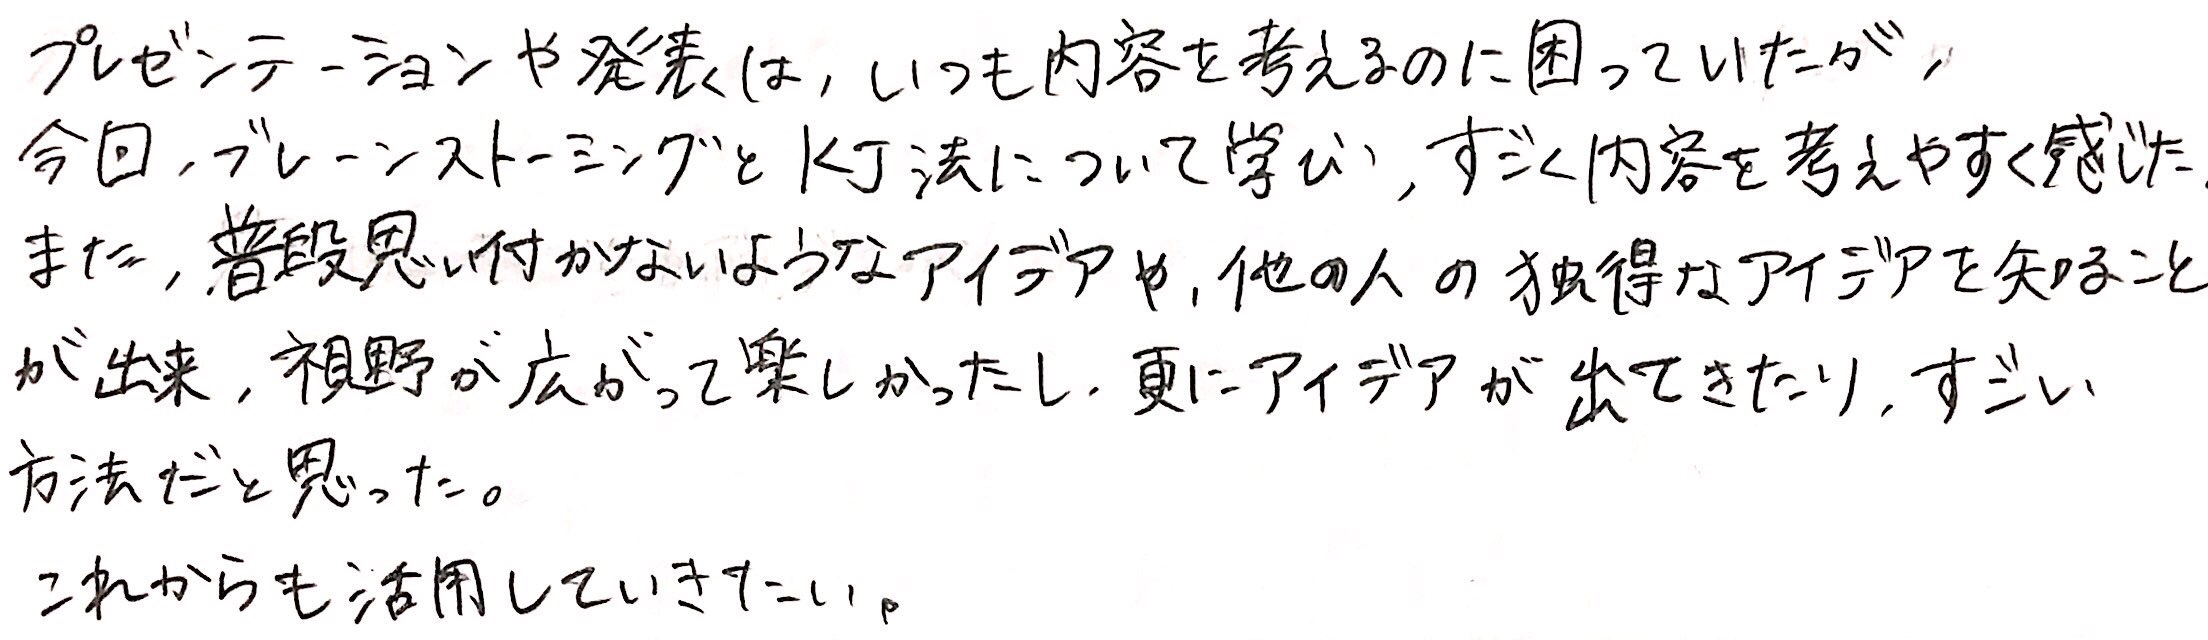 プレゼンテーションや発表は,いつも内容を考えるのに困っていたが,
今回,ブレーンストーミングとKJ法について学び,すごく内容を考えやすく感じた.
また,普段思い付かないようなアイデアや,他の人の独得なアイデアを知ること
が出来,視野が広がって楽しかったし.更にアイデアが出てきたり,すごい
方法だと思った。
これからも活用していきたい。